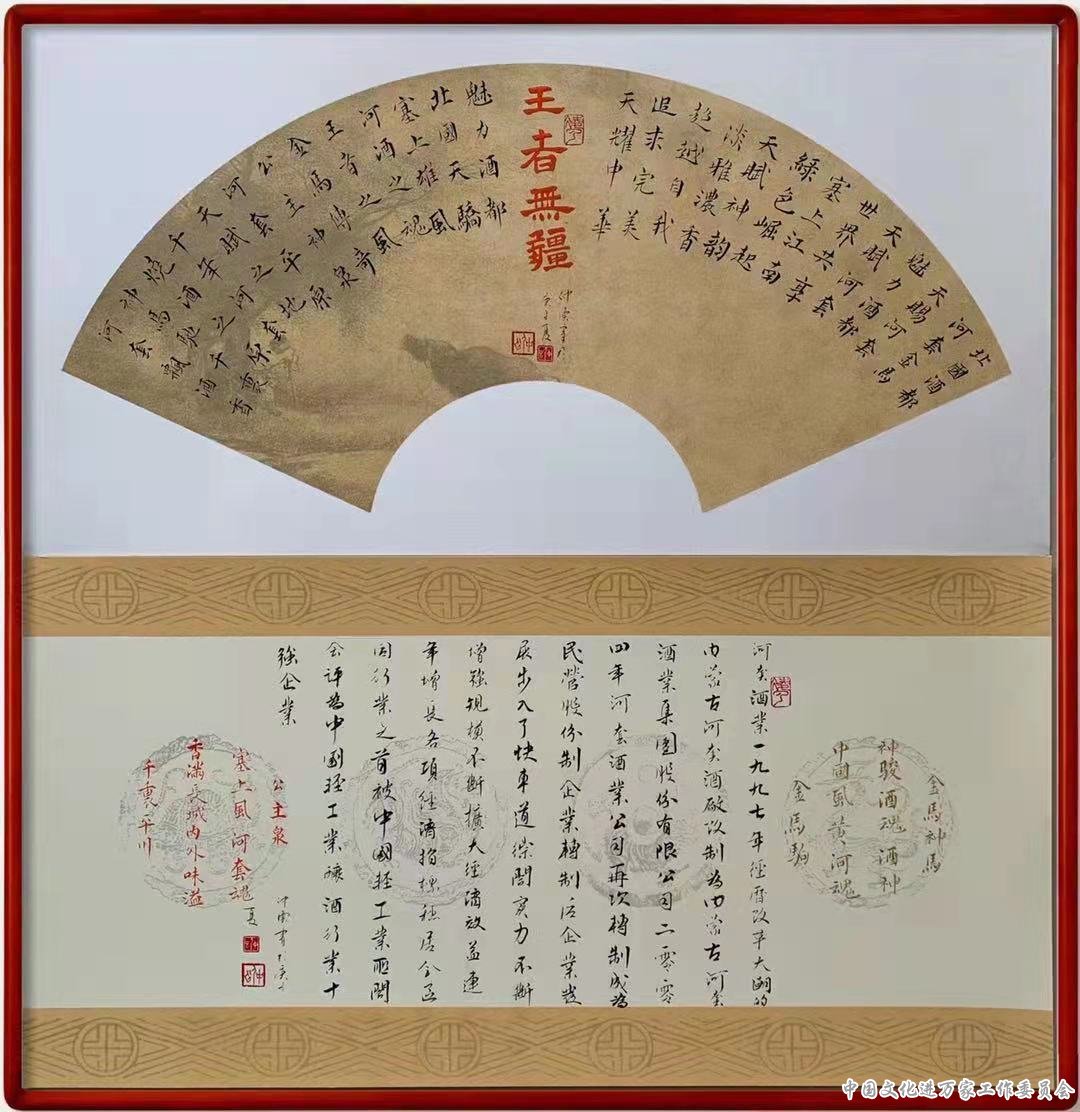 北國酒都
河套金馬
天賜河套
魅力酒都
天賦河套
世界共享
塞上江南
綠色崛起
天賦神韵
淡雅濃香
超越自我
追求完美
天耀中華
王者無疆
書於
庚子夏
魅力酒都
北國天驕
塞上雄風
河酒之魂
王者之風
金馬傳奇
公主神泉
河套平原
天賦之地
千年河套
燒酒之
神馬馳千裏
河套飄酒香
金馬神馬
神駿酒魂酒神
中國風黃河魂
金馬駒
河套酒業一九九七年經曆改革大潮的
內蒙古河套酒廠改制為內蒙古河套
酒業集團股份有限公司二零零
四年河套酒業公司再次轉制成為
民營股份制企業轉制後企業發
展步入了快車道綜閤實力不斷
增強規模不斷擴大經濟效益連
年增長各項經濟指標穩居全區
同行業之首被中國輕工業聯閤
會評為中國輕工業釀酒行業十
強企業
公主泉
塞上風河套魂
香滿長城內外味溢
千裏平川
書於庚子
夏
中国文化进万家工作委员会